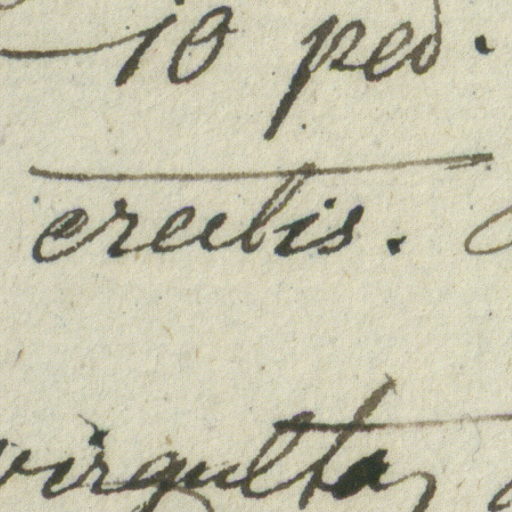 10 ped.
erectis.
virgulta,